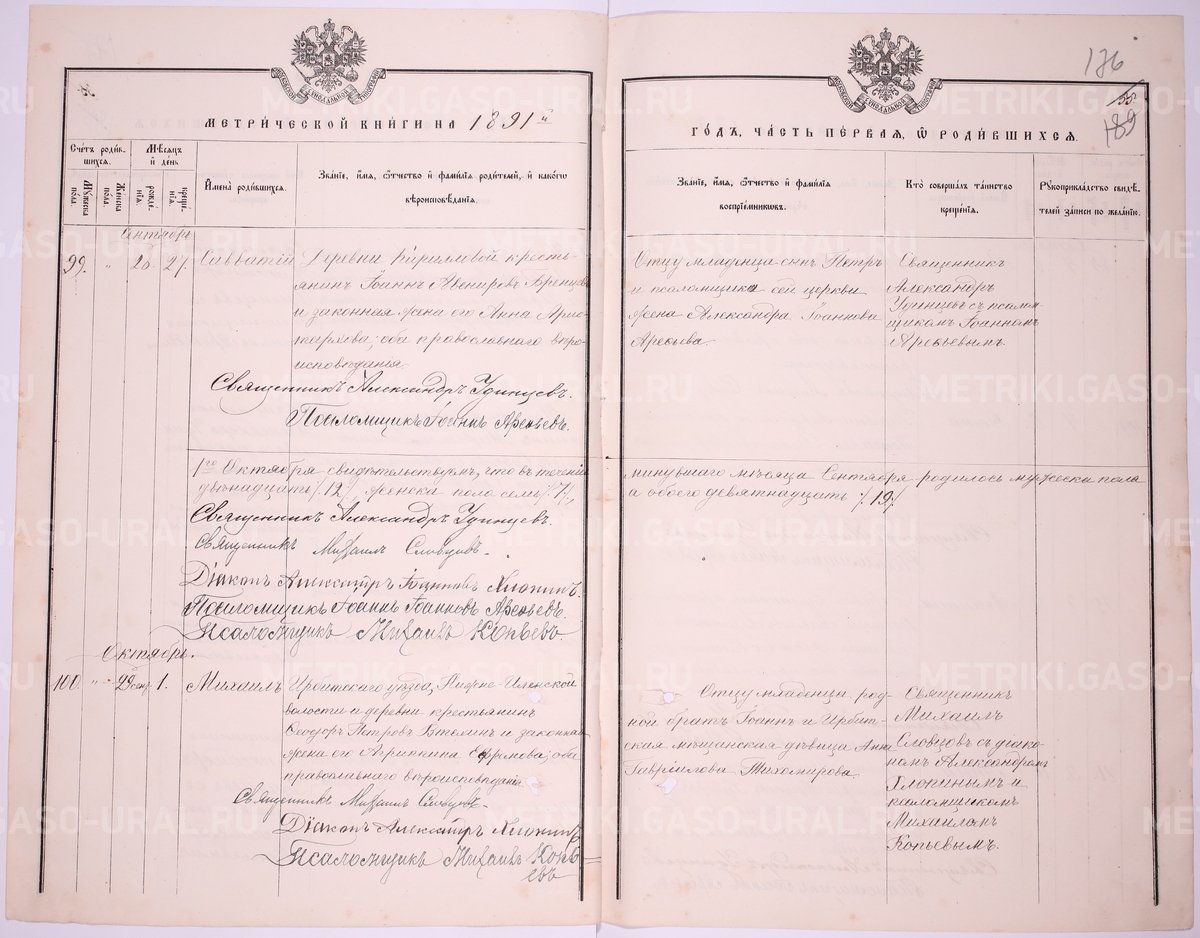 176
55
189
МЕТРИЧЕСКОЙ КНИГИ НА 1891 й
ГОДЪ, ЧАСТЬ ПЕРВАЯ, Ѡ РОДИВШИХСЯ.
Счетъ родив-
шихся.
Мѣсяцъ
и день
Мужеска
пола.
Женска
пола.
рожде-
нія.
креще-
нія.
Имена родившихся.
Званіе, имя, отчество и фамилія родителей, и какого
вѣроисповѣданія.
Званіе, имя, отчество и фамилія
воспріемниковъ.
Кто совершалъ таинство
крещенія.
Рукоприкладство свидѣ-
телей записи по желанію.
Сентябрь
99. " 20 27. Савватій
Деревни Кириловой кресть-
янинъ Іоаннъ Авенировъ Бренцовъ
и законная жена его Анна Арис-
тархова; оба православнаго вѣро-
исповѣданія.
Священникъ Александръ Удинцевъ.
Псаломщикъ Іоаннъ Арефьевъ.
Отцу младенца сынъ Петръ
и псаломщика сей церкви
жена Александра Іоаннова
Арефьева.
Священникъ
Александръ
Удинцевъ съ псалом-
щикомъ Іоанномъ
Арефьевымъ.
1го Октября свидѣтельствуемъ, что въ теченіи
минувшаго мѣсяца Сентября родилось мужеска пола
двѣнадцать /12/, женска пола семь /7/,
а обоего девятнадцать /19/
Священникъ Александръ Удинцевъ.
Священникъ Михаилъ Словцовъ.
Діаконъ Александръ Хлопинъ.
Псаломщикъ Іоаннъ Іоанновъ Арефьевъ.
Псаломщикъ Михаилъ Копьевъ.
Октябрь.
100. " 29 сент. 1. Михаилъ
Ирбитскаго уѣзда, Нижне-Иленской
волости и деревни крестьянинъ
Ѳеодоръ Петровъ и законная
жена его Агриппина Ефремова; оба
православнаго вѣроисповѣданія
Священникъ Михаилъ Словцовъ.
Діаконъ Александръ Хлопинъ
Псаломщикъ Михаилъ Копь-
евъ
Отцу младенца род-
ной братъ Іоаннъ и Ирбит-
ская мѣщанская дѣвица Анна
Гавріилова Тихомирова.
Священникъ
Михаилъ
Словцовъ съ діако-
номъ Александромъ
Хлопинымъ и
псаломщикомъ
Михаиломъ
Копьевымъ.
METRIKI.GASO-URAL.RU